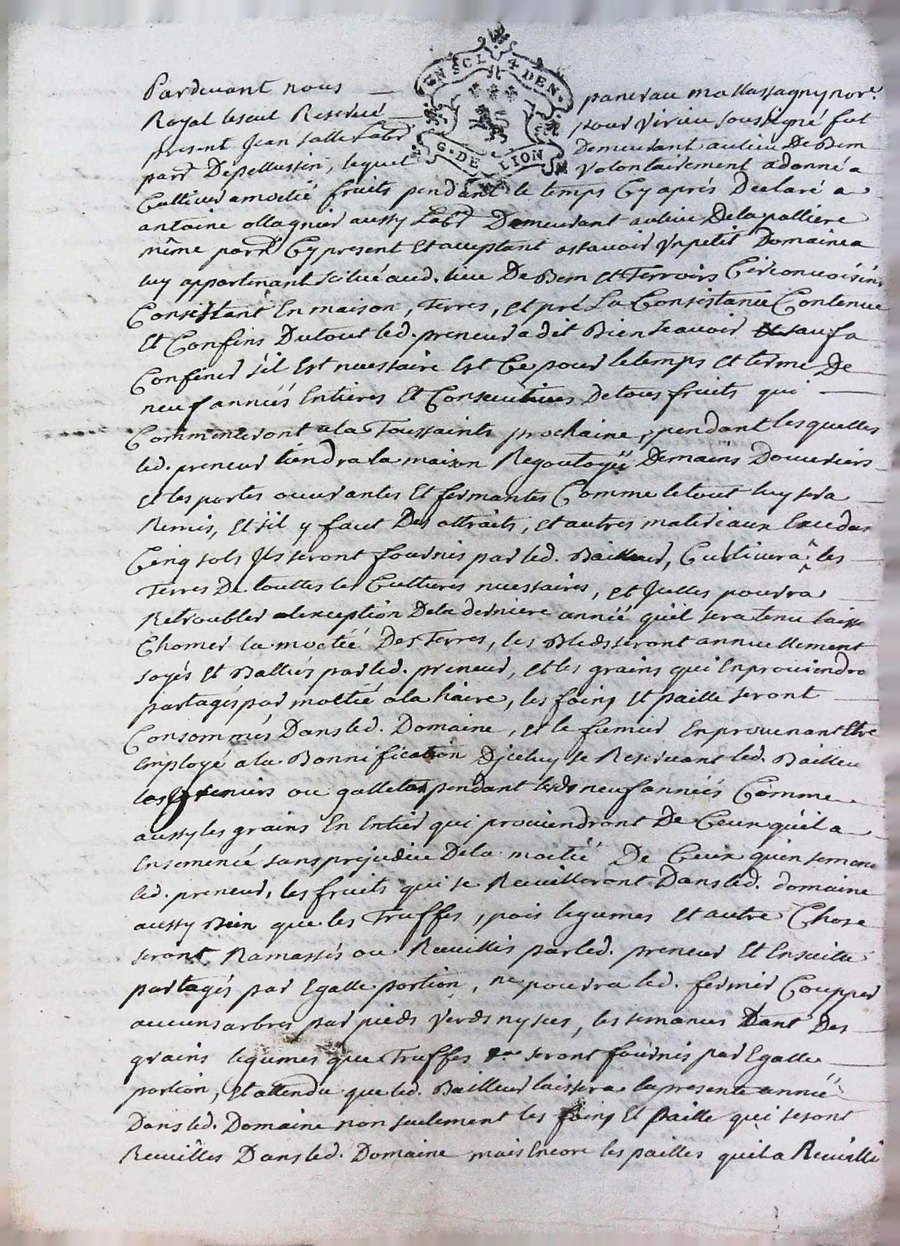 EN SCL 4 DEN.
G. DE LION
Pardevant nous
Royal et seul Reservé pour Virieu soussigné fut
present Jean Salle Labr Demeurant au lieu De Bem
parr De pellussin, lequel Volontairement a donné a
Cultiver a moetié fruits pendant le temps Cy aprés Declaré a
antoine ollagnier aussy Labr Demeurant au lieu De la valliere
même parr Cy present Et acceptant assavoir Un petit Domaine a
luy appartenant scitué aud. lieu De Bem et Terroirs Circonvoisins
Consistant En maison, Terres, et pré La Consistance Contenue
Et Confins Du tout led. preneur a dit Bien scavoir sauf a
Confiner s'il Est necessaire Est Ce pour le temps et terme De
neuf années Entieres Et Consecutives De tous fruits qui
Commenceront a la Toussaints prochaine, pendant lesquelles
led. preneur tiendra la maison Regoutoyée De mains D'ouvriers
Et les portes ouvrantes Et fermantes Comme le tout luy sera
Remis, Et s'il y faut Des attraits, et autres materiaux Excedan
Cinq sols Ils seront fournis par led. Bailleur, Cultivera les
Terres De touttes les Cultures necessaires, et Icelles pourra
Retroubler a lexception De la derniere année qu'il sera tenu laisse
Chomer la moetié Des Terres, les Bleds seront annuellement
soyés Et Battües par led. preneur, et les grains qui En proviendro
partagés par moetié a la haire, les foins Et paille seront
Consommés Dans led. Domaine, et le fumier En provenant Etre
Employé a la Bonnification D'iceluy se Reservant led. Bailleu
les greniers ou galletas pendant lesd. neuf années Comme
aussy les grains En Entier qui proviendront De Ceux qu'il a
Ensemencé sans prejudice De la moetié De Ceux qu'ensemenc
led. preneur, les fruits qui se Recuilleront Dans led. domaine
aussy Bien que les Truffes, pois legumes Et autre Chose
seront Ramassés ou Recuillis par led. preneur Et Ensuitte
partagés par Egalle portion, ne pourra led. fermier Coupper
aucuns arbres par pieds verds ny secs, les semances Dant Des
grains legumes que Truffes seront fournis par Egalle
portion, Et attendu que led. Bailleur laissera la presente année
Dans led. Domaine non seulement les foins Et paille qui seront
Recuilles Dans led. Domaine mais Encore les pailles qu'il a Recuilli